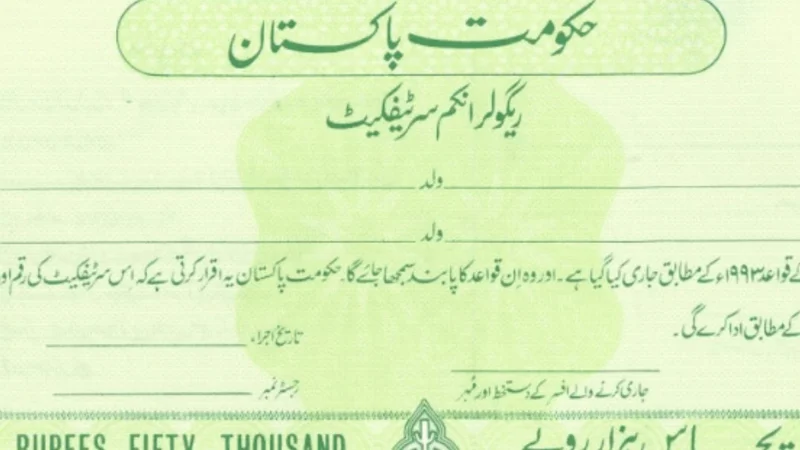 حکومت پاکستان
ریگولر انکم سرٹیفکیٹ
ولد
ولد
کے قواعد ۱۹۹۳ء کے مطابق جاری کیا گیا ہے۔ اور وہ اِن قواعد کا پابند سمجھا جائے گا۔ حکومت پاکستان یہ اقرار کرتی ہے کہ اِس سرٹیفکیٹ کی رقم
کے مطابق ادا کرے گی۔
تاریخ اجراء
جاری کرنے والے افسر کے دستخط اور مُہر
رجسٹر نمبر
RUPEES FIFTY THOUSAND
ہزار روپے